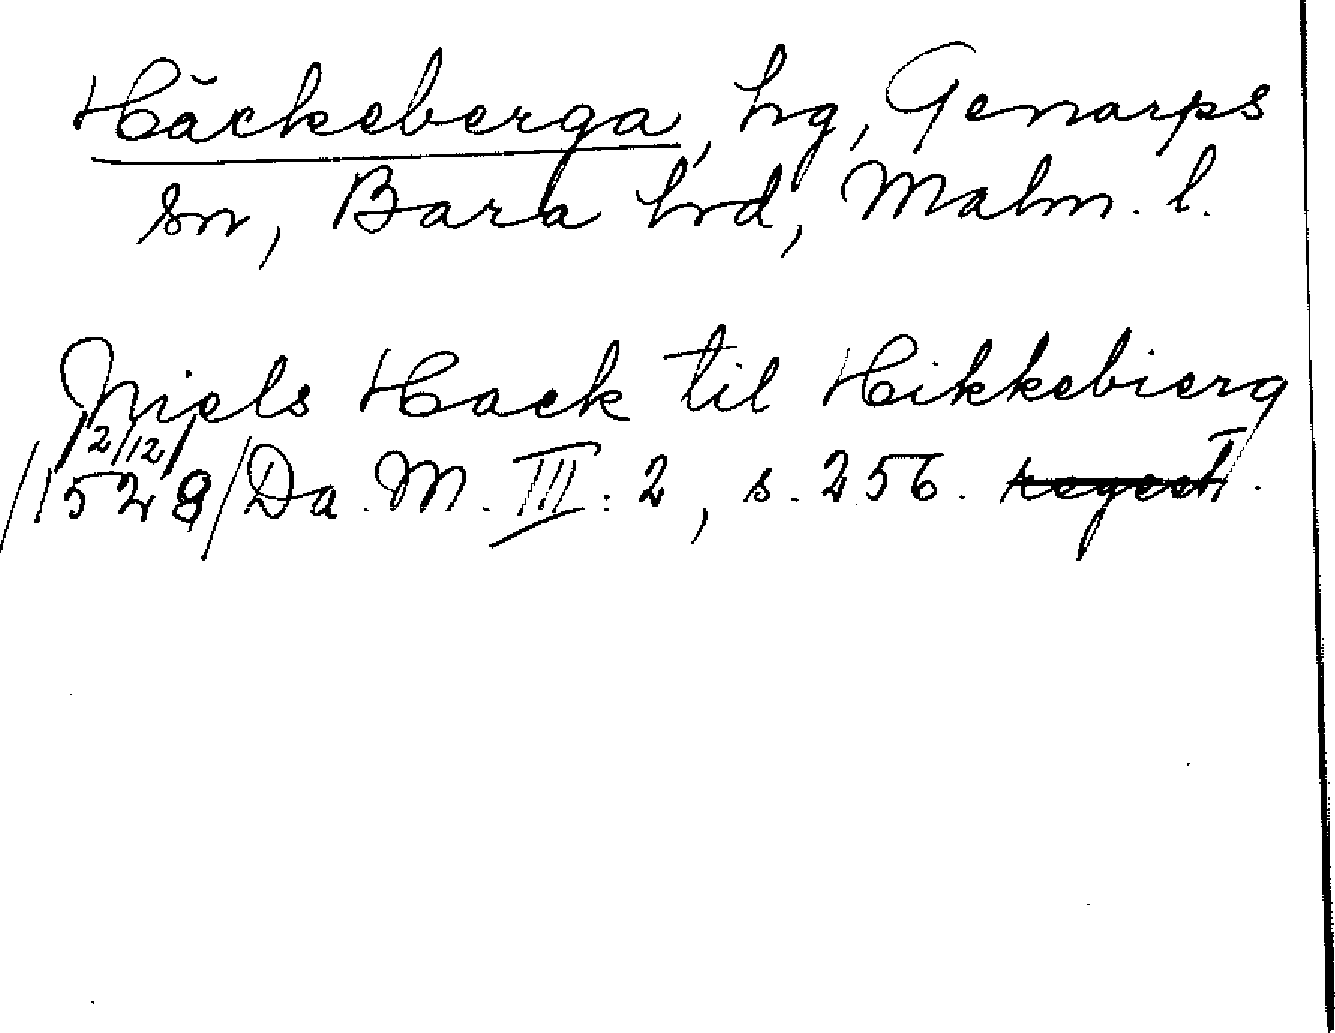 Häckeberga, hg, Genarps
sn, Bara hrd, Malm. l.
Niels Hack til Hikkebierg
2/12
/1528/ Da. M. III: 2, s. 256. regest.